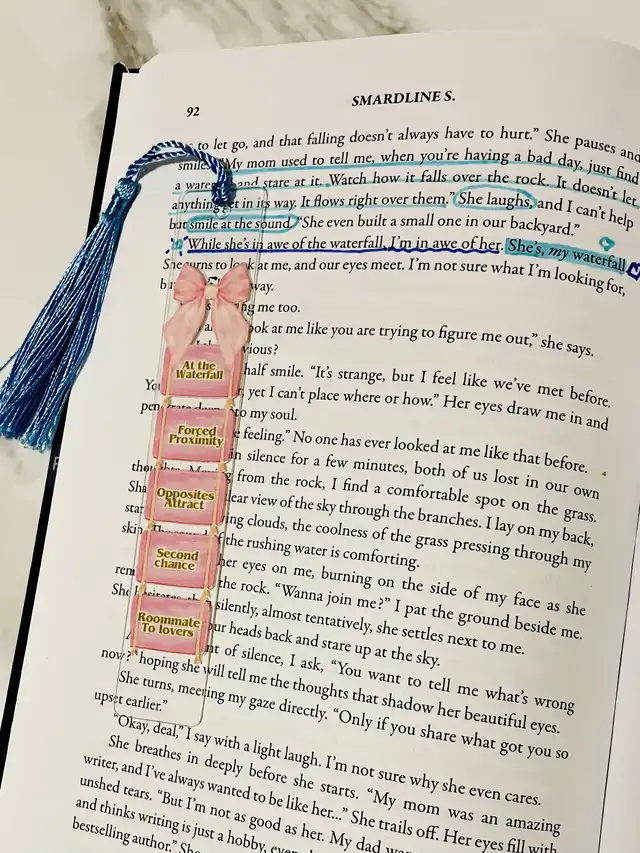 92
SMARDLINE S.
to let go, and that falling doesn't always have to hurt." She pauses and
smiles. "My mom used to tell me, when you're having a bad day, just find
a and stare at it. Watch how it falls over the rock. It doesn't let
anything get in its way. It flows right over them." She laughs, and I can't help
but smile at the sound. "She even built a small one in our backyard."
While she's in awe of the waterfall, I'm in awe of her. She's, my waterfall.
She turns to look at me, and our eyes meet. I'm not sure what I'm looking for,
way.
ng me too.
look at me like you are trying to figure me out," she says.
vious?
half smile. "It's strange, but I feel like we've met before.
yet I can't place where or how." Her eyes draw me in and
to my soul.
feeling." No one has ever looked at me like that before.
in silence for a few minutes, both of us lost in our own
from the rock, I find a comfortable spot on the grass.
clear view of the sky through the branches. I lay on my back,
ing clouds, the coolness of the grass pressing through my
the rushing water is comforting.
her eyes on me, burning on the side of my face as she
the rock. "Wanna join me?" I pat the ground beside me.
silently, almost tentatively, she settles next to me.
our heads back and stare up at the sky.
of silence, I ask, "You want to tell me what's wrong
now?" hoping she will tell me the thoughts that shadow her beautiful eyes.
She turns, meeting my gaze directly. "Only if you share what got you so
upset earlier."
"Okay, deal," I say with a light laugh. I'm not sure why she even cares.
She breathes in deeply before she starts. "My mom was an amazing
writer, and I've always wanted to be like her..." She trails off. Her eyes fill with
unshed tears. "But I'm not as good as her. My dad
and thinks writing is just a hobby,
bestselling author."
At the
Waterfall
Forced
Proximity
Opposites
Attract
Second
chance
Roommate
To lovers